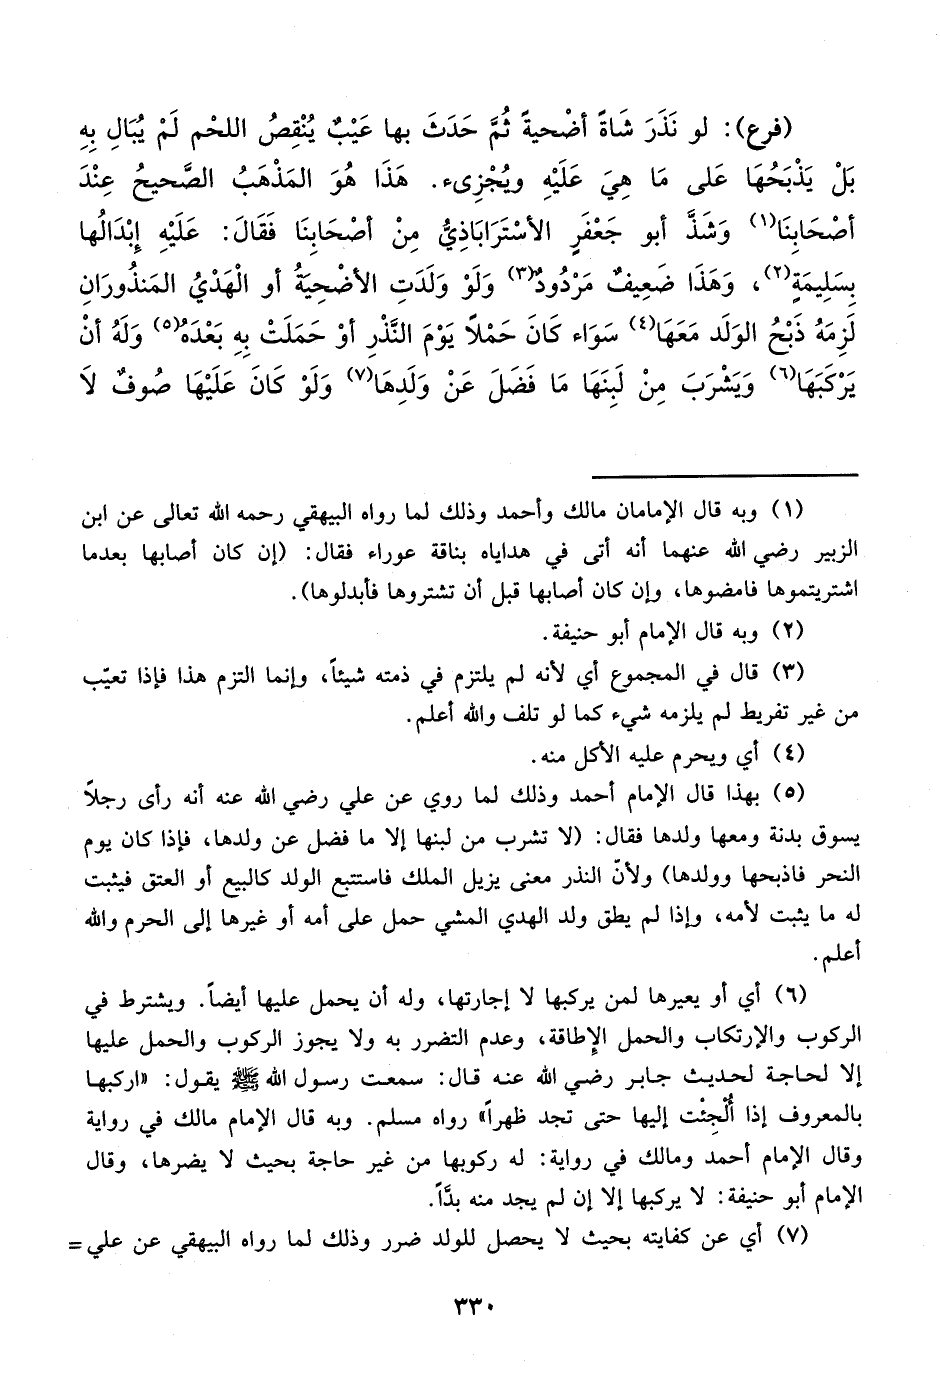 (فرع): لو نَذَرَ شَاةً أضْحيةً ثُمَّ حَدَثَ بها عَيْبٌ يُنْقِصُ اللحْم لَمْ يُبَالِ بِهِ
بَلْ يَذْبَحُهَا عَلى مَا هِيَ عَلَيْهِ ويُجْزِىء. هَذَا هُوَ المَذْهَبُ الصَّحيحُ عِنْدَ
أصْحَابِنَا(١) وَشَذَّ أبو جَعْفَرٍ الأسْتَرَابَاذِيُّ مِنْ أصْحَابِنَا فَقَالَ: عَلَيْهِ إبْدَالُها
بِسَلِيمَةٍ(٢)، وَهَذَا ضَعِيفٌ مَرْدُودٌ(٣) وَلَوْ وَلَدَتِ الأضْحِيَةُ أو الْهَدْيُ المَنذُورَانِ
لَزِمَهُ ذَبْحُ الوَلَد مَعَهَا(٤) سَوَاء كَانَ حَمْلاً يَوْمَ النَّذْرِ أوْ حَمَلَتْ بِهِ بَعْدَهُ(٥) وَلَهُ أنْ
يَرْكَبَهَا(٦) وَيَشْرَبَ مِنْ لَبَنِهَا مَا فَضَلَ عَنْ وَلَدِهَا(٧) وَلَوْ كَانَ عَلَيْهَا صُوفٌ لاَ
(١) وبه قال الإمامان مالك وأحمد وذلك لما رواه البيهقي رحمه الله تعالى عن ابن
الزبير رضي الله عنهما أنه أتى في هداياه بناقة عوراء فقال: (إن كان أصابها بعدما
اشتريتموها فامضوها، وإن كان أصابها قبل أن تشتروها فأبدلوها).
(٢) وبه قال الإمام أبو حنيفة.
(٣) قال في المجموع أي لأنه لم يلتزم في ذمته شيئاً، وإنما التزم هذا فإذا تعيّب
من غير تفريط لم يلزمه شيء كما لو تلف والله أعلم.
(٤) أي ويحرم عليه الأكل منه.
(٥) بهذا قال الإمام أحمد وذلك لما روي عن علي رضي الله عنه أنه رأى رجلاً
يسوق بدنة ومعها ولدها فقال: (لا تشرب من لبنها إلا ما فضل عن ولدها، فإذا كان يوم
النحر فاذبحها وولدها) ولأنّ النذر معنى يزيل الملك فاستتبع الولد كالبيع أو العتق فيثبت
له ما يثبت لأمه، وإذا لم يطق ولد الهدي المشي حمل على أمه أو غيرها إلى الحرم والله
أعلم.
(٦) أي أو يعيرها لمن يركبها لا إجارتها، وله أن يحمل عليها أيضاً. ويشترط في
الركوب والإرتكاب والحمل الإطاقة، وعدم التضرر به ولا يجوز الركوب والحمل عليها
إلا لحاجة لحديث جابر رضي الله عنه قال: سمعت رسول الله ﷺ يقول: «اركبها
بالمعروف إذا أُلْجِئْت إليها حتى تجد ظهراً» رواه مسلم. وبه قال الإمام مالك في رواية
وقال الإمام أحمد ومالك في رواية: له ركوبها من غير حاجة بحيث لا يضرها، وقال
الإمام أبو حنيفة: لا يركبها إلا إن لم يجد منه بدَّاً.
(٧) أي عن كفايته بحيث لا يحصل للولد ضرر وذلك لما رواه البيهقي عن علي =
٣٣٠